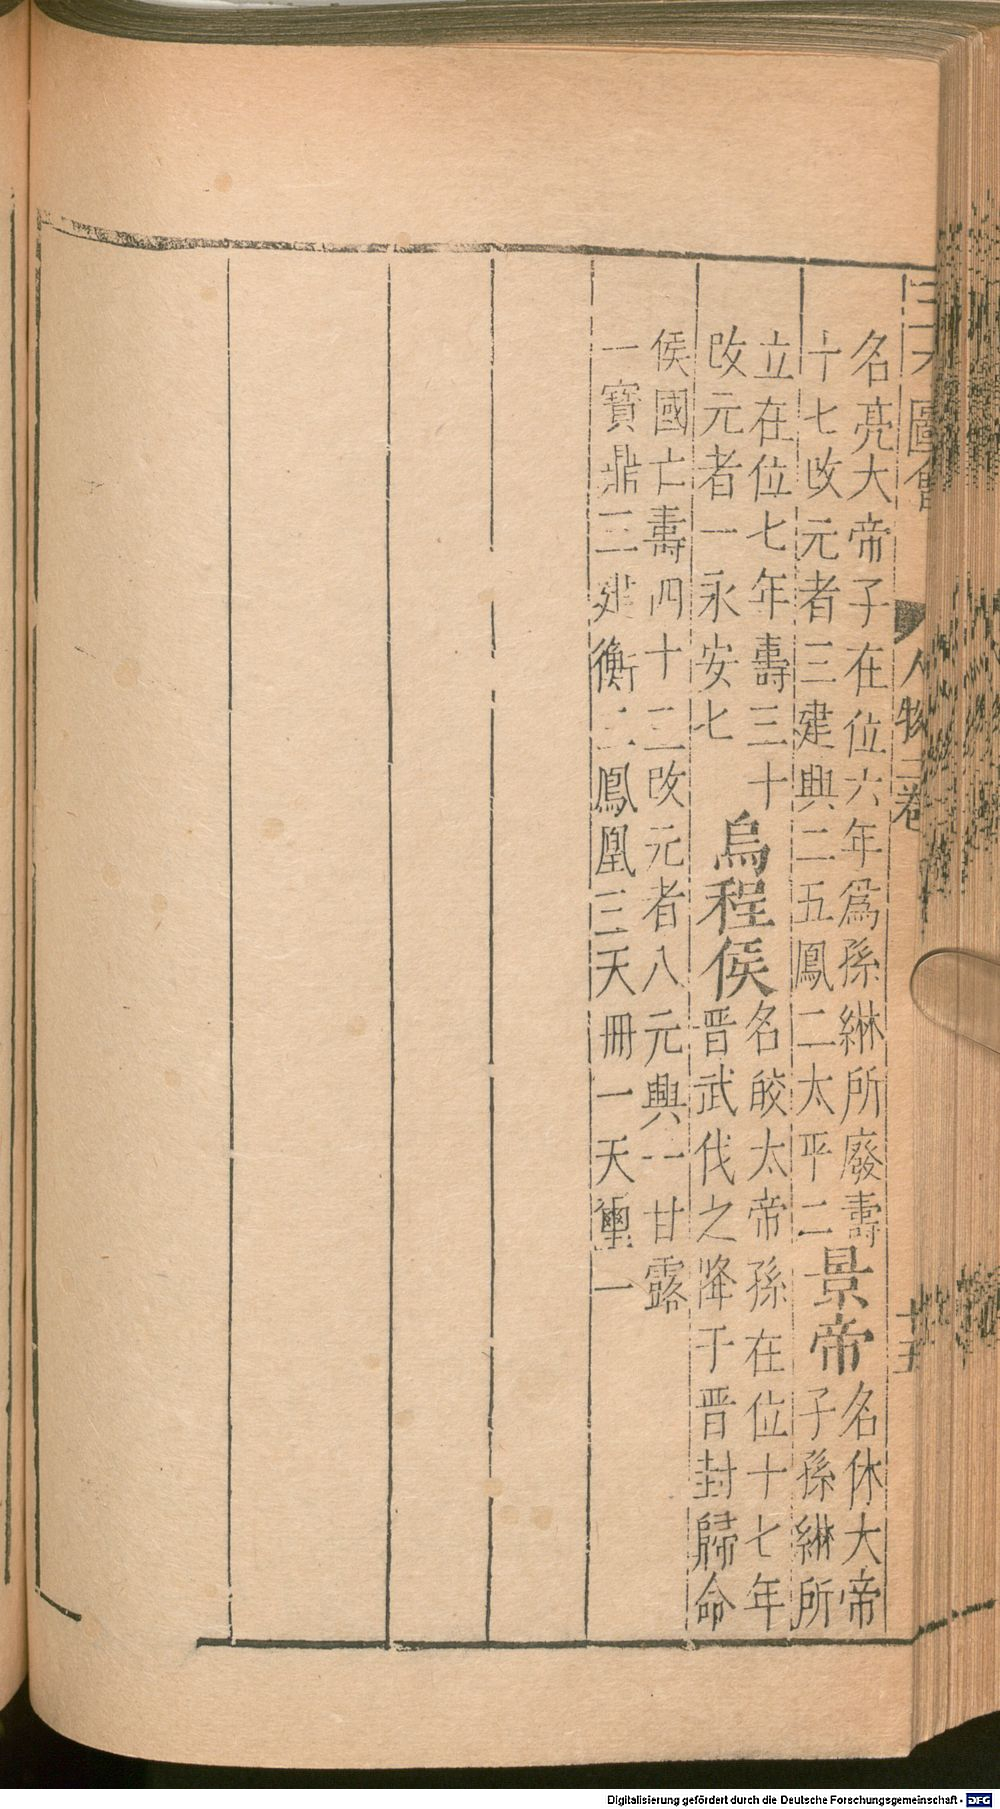 三才圖會 人物二卷 十五
名亮大帝子在位六年爲孫綝所廢壽
十七改元者三建興二五鳳二太平二
景帝
名休大帝
子孫綝所
立在位七年壽三十
改元者一永安七
烏程侯
名皎太帝孫在位十七年
晋武伐之降于晋封歸命
侯國亡壽四十二改元者八元興一甘露
一寶鼎三建衡二鳳凰三天冊一天璽一
Digitalisierung gefördert durch die Deutsche Forschungsgemeinschaft - DFG